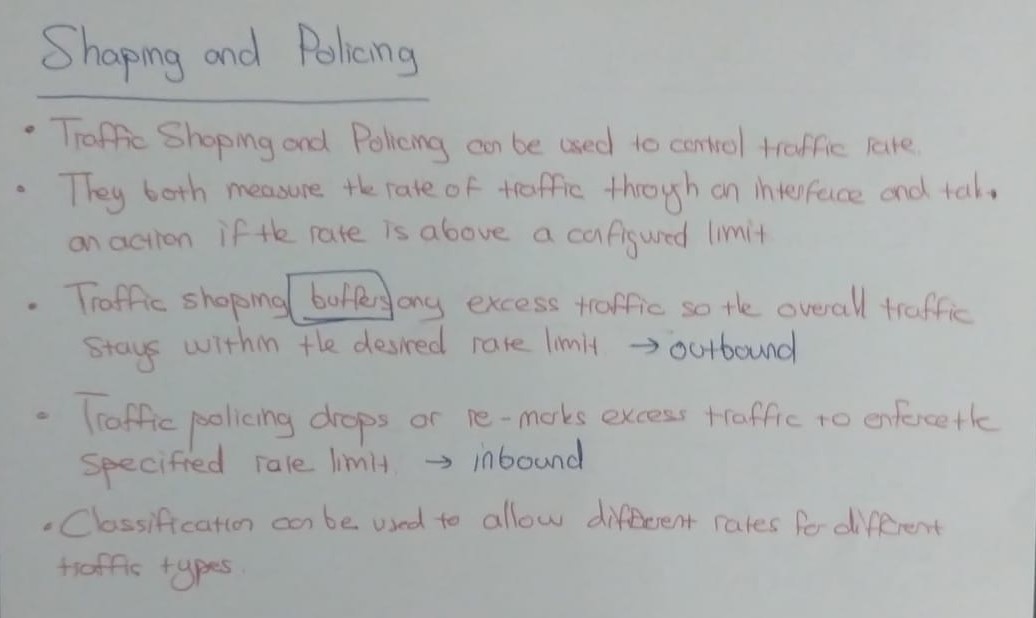 Shaping and Policing
• Traffic Shaping and Policing can be used to control traffic rate.
• They both measure the rate of traffic through an interface and take
an action if the rate is above a configured limit
• Traffic shaping buffers any excess traffic so the overall traffic
stays within the desired rate limit → outbound
• Traffic policing drops or re-marks excess traffic to enforce the
specified rate limit. → inbound
• Classification can be used to allow different rates for different
traffic types.